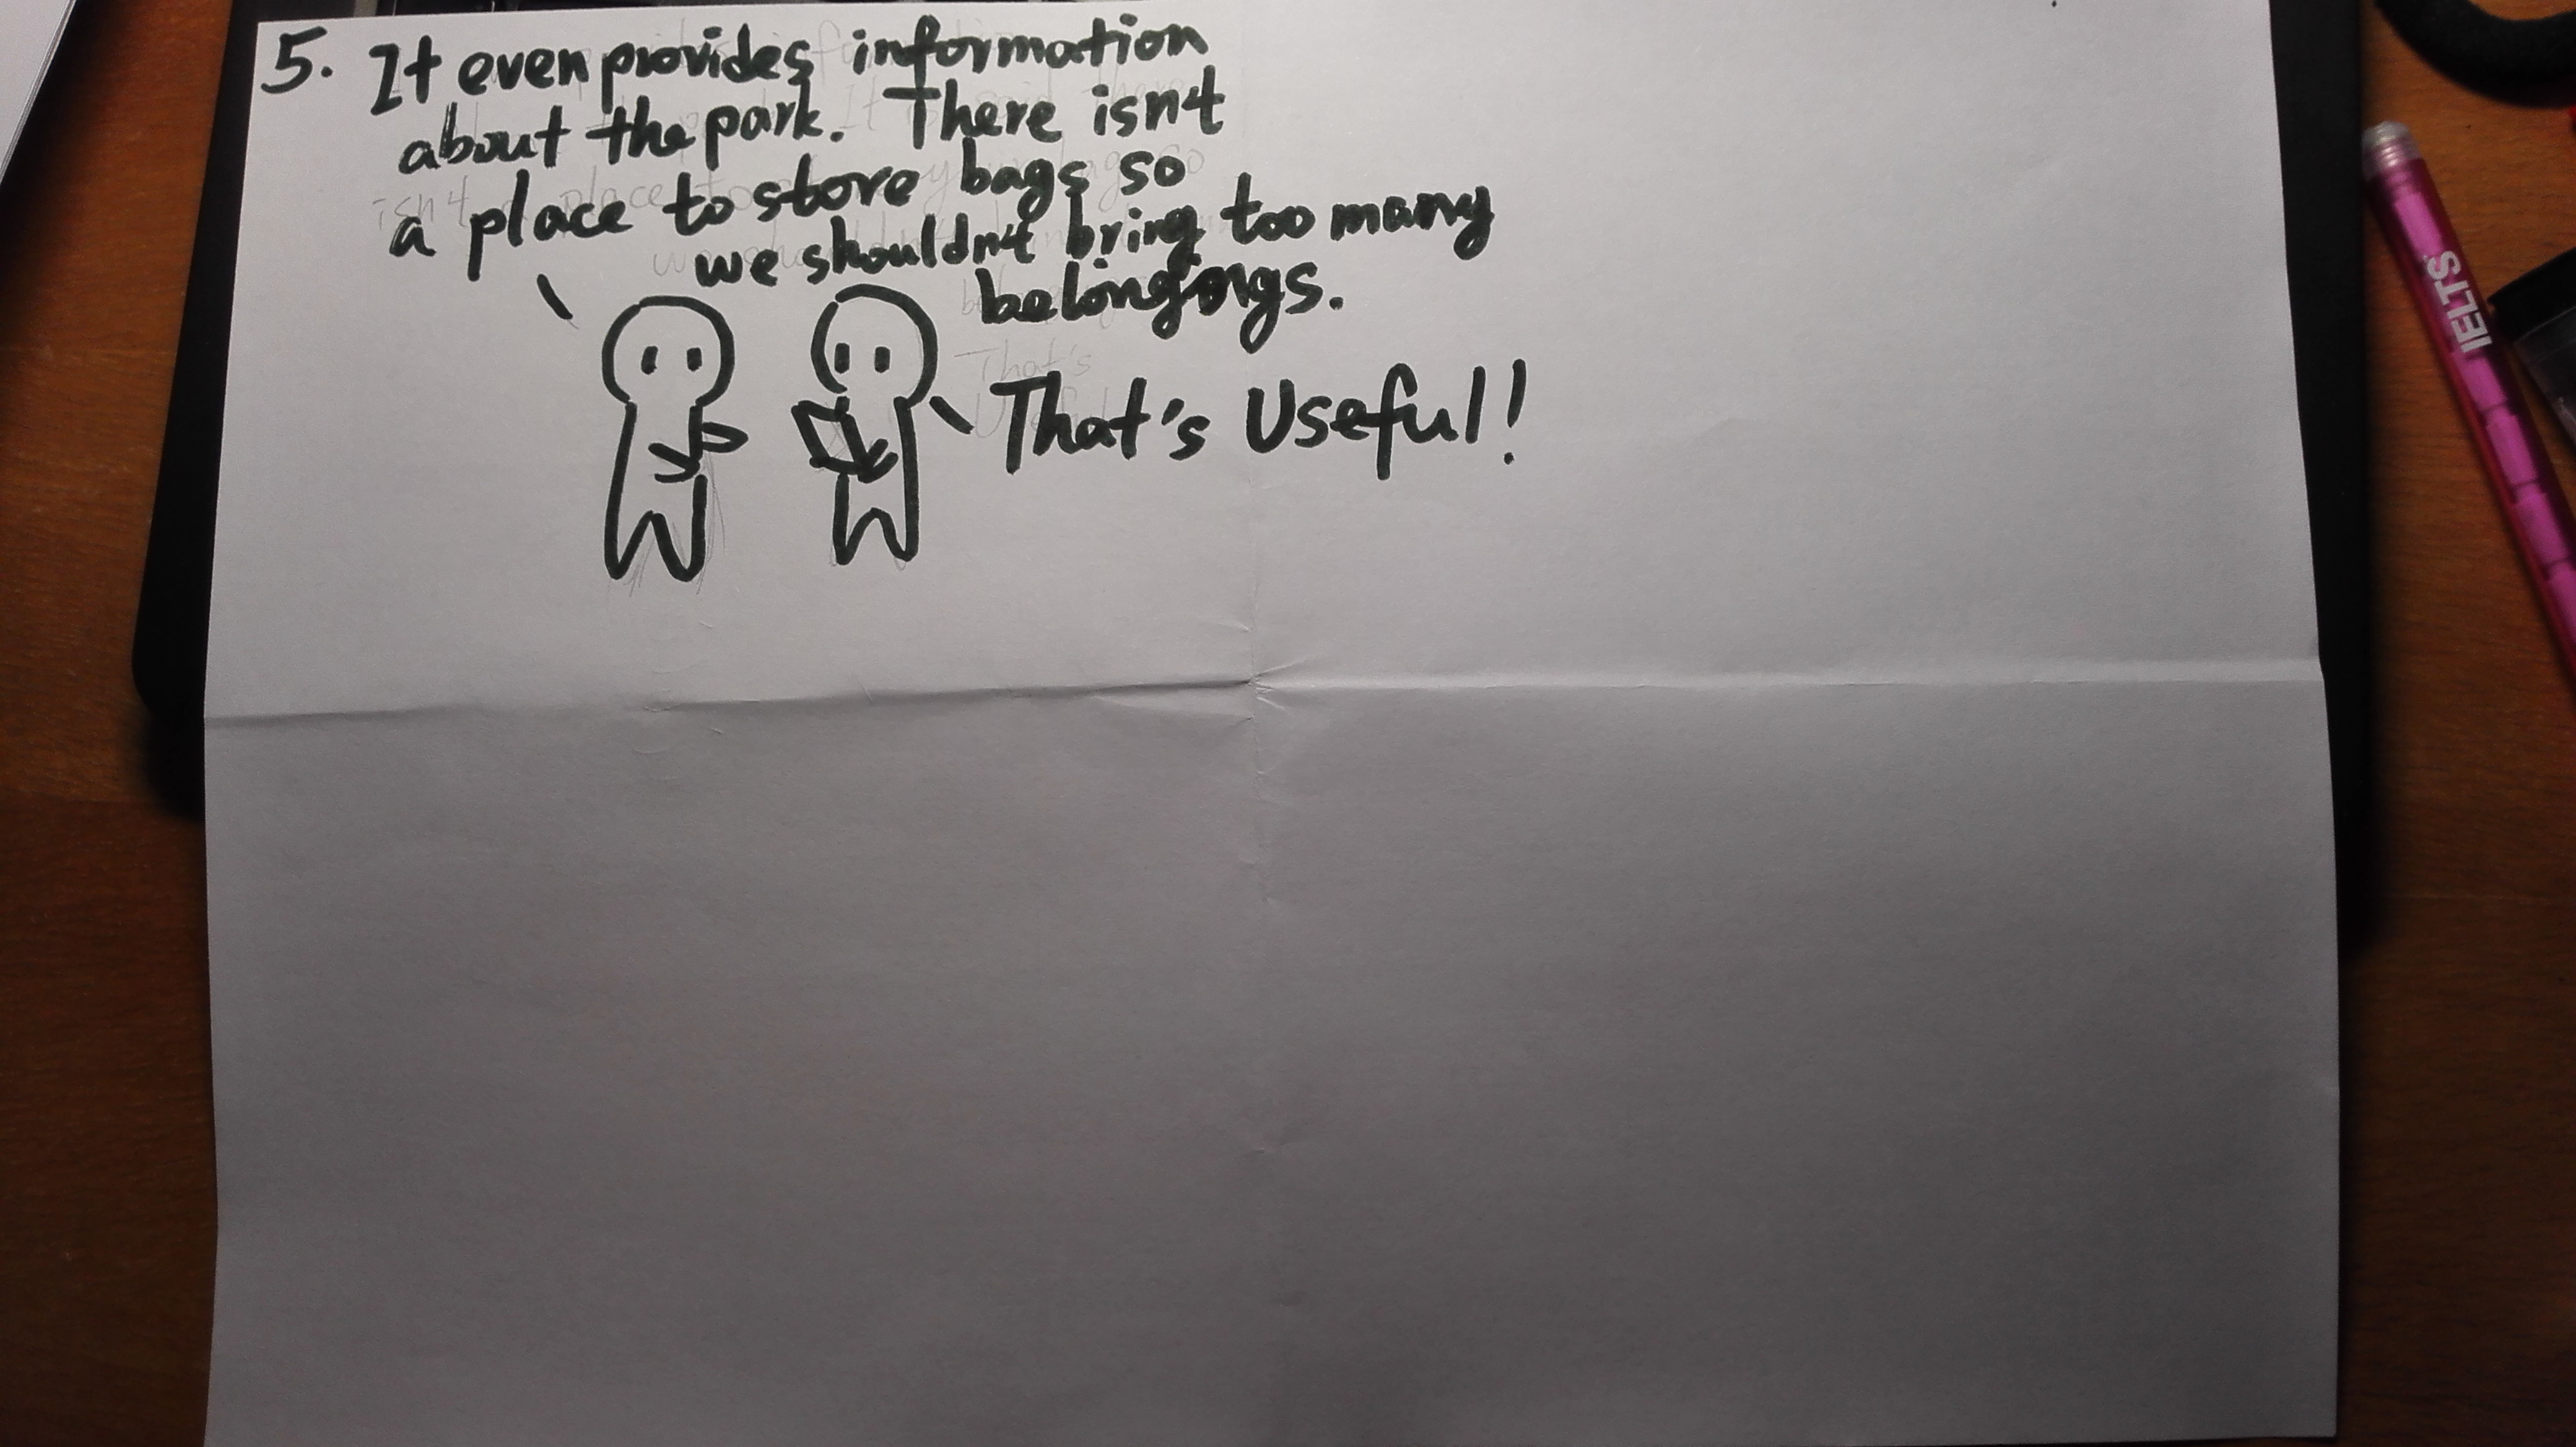 5. It even provides information
about the park. There isn't
a place to store bags so
we shouldn't bring too many
belongings.
That's Useful!
IELTS